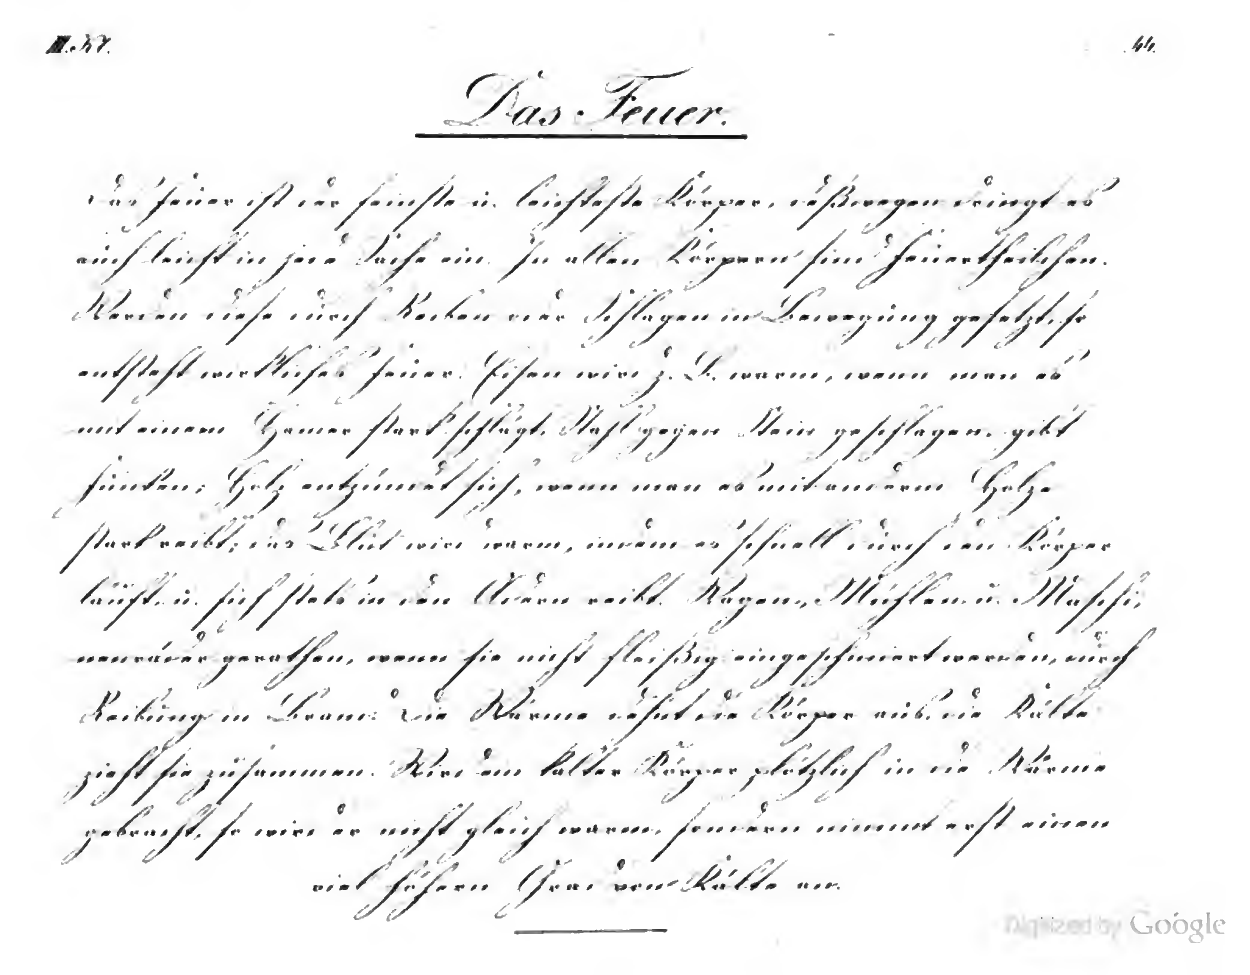 III. Kl. 44.
Das Feuer.
Das Feuer ist der feinste u. leichteste Körper, deßwegen dringt es
auch leicht in jede Sache ein. In allen Körpern sind Feuertheilchen.
Werden diese durch Reiben oder Schlagen in Bewegung gesetzt, so
entsteht wirkliches Feuer. Eisen wird z. B. warm, wenn man es
mit einem Hamer stark schlägt. Stahl gegen Stein geschlagen, gibt
Funken; Holz entzündet sich, wenn man es mit anderm Holze
stark reibt; das Blut wird warm, indem es schnell durch den Körper
läuft u. sich stets in den Adern reibt. Wagen-, Mühlen- u. Maschi-
nenräder gerathen, wenn sie nicht fleißig eingeschmiert werden, durch
Reibung in Brand. Die Wärme dehnt die Körper aus, die Kälte
zieht sie zusammen. Wird ein kalter Körper plötzlich in die Wärme
gebracht, so wird er nicht gleich warm, sondern nimmt erst einen
viel höhern Grad von Kälte an.
Digitized by Google